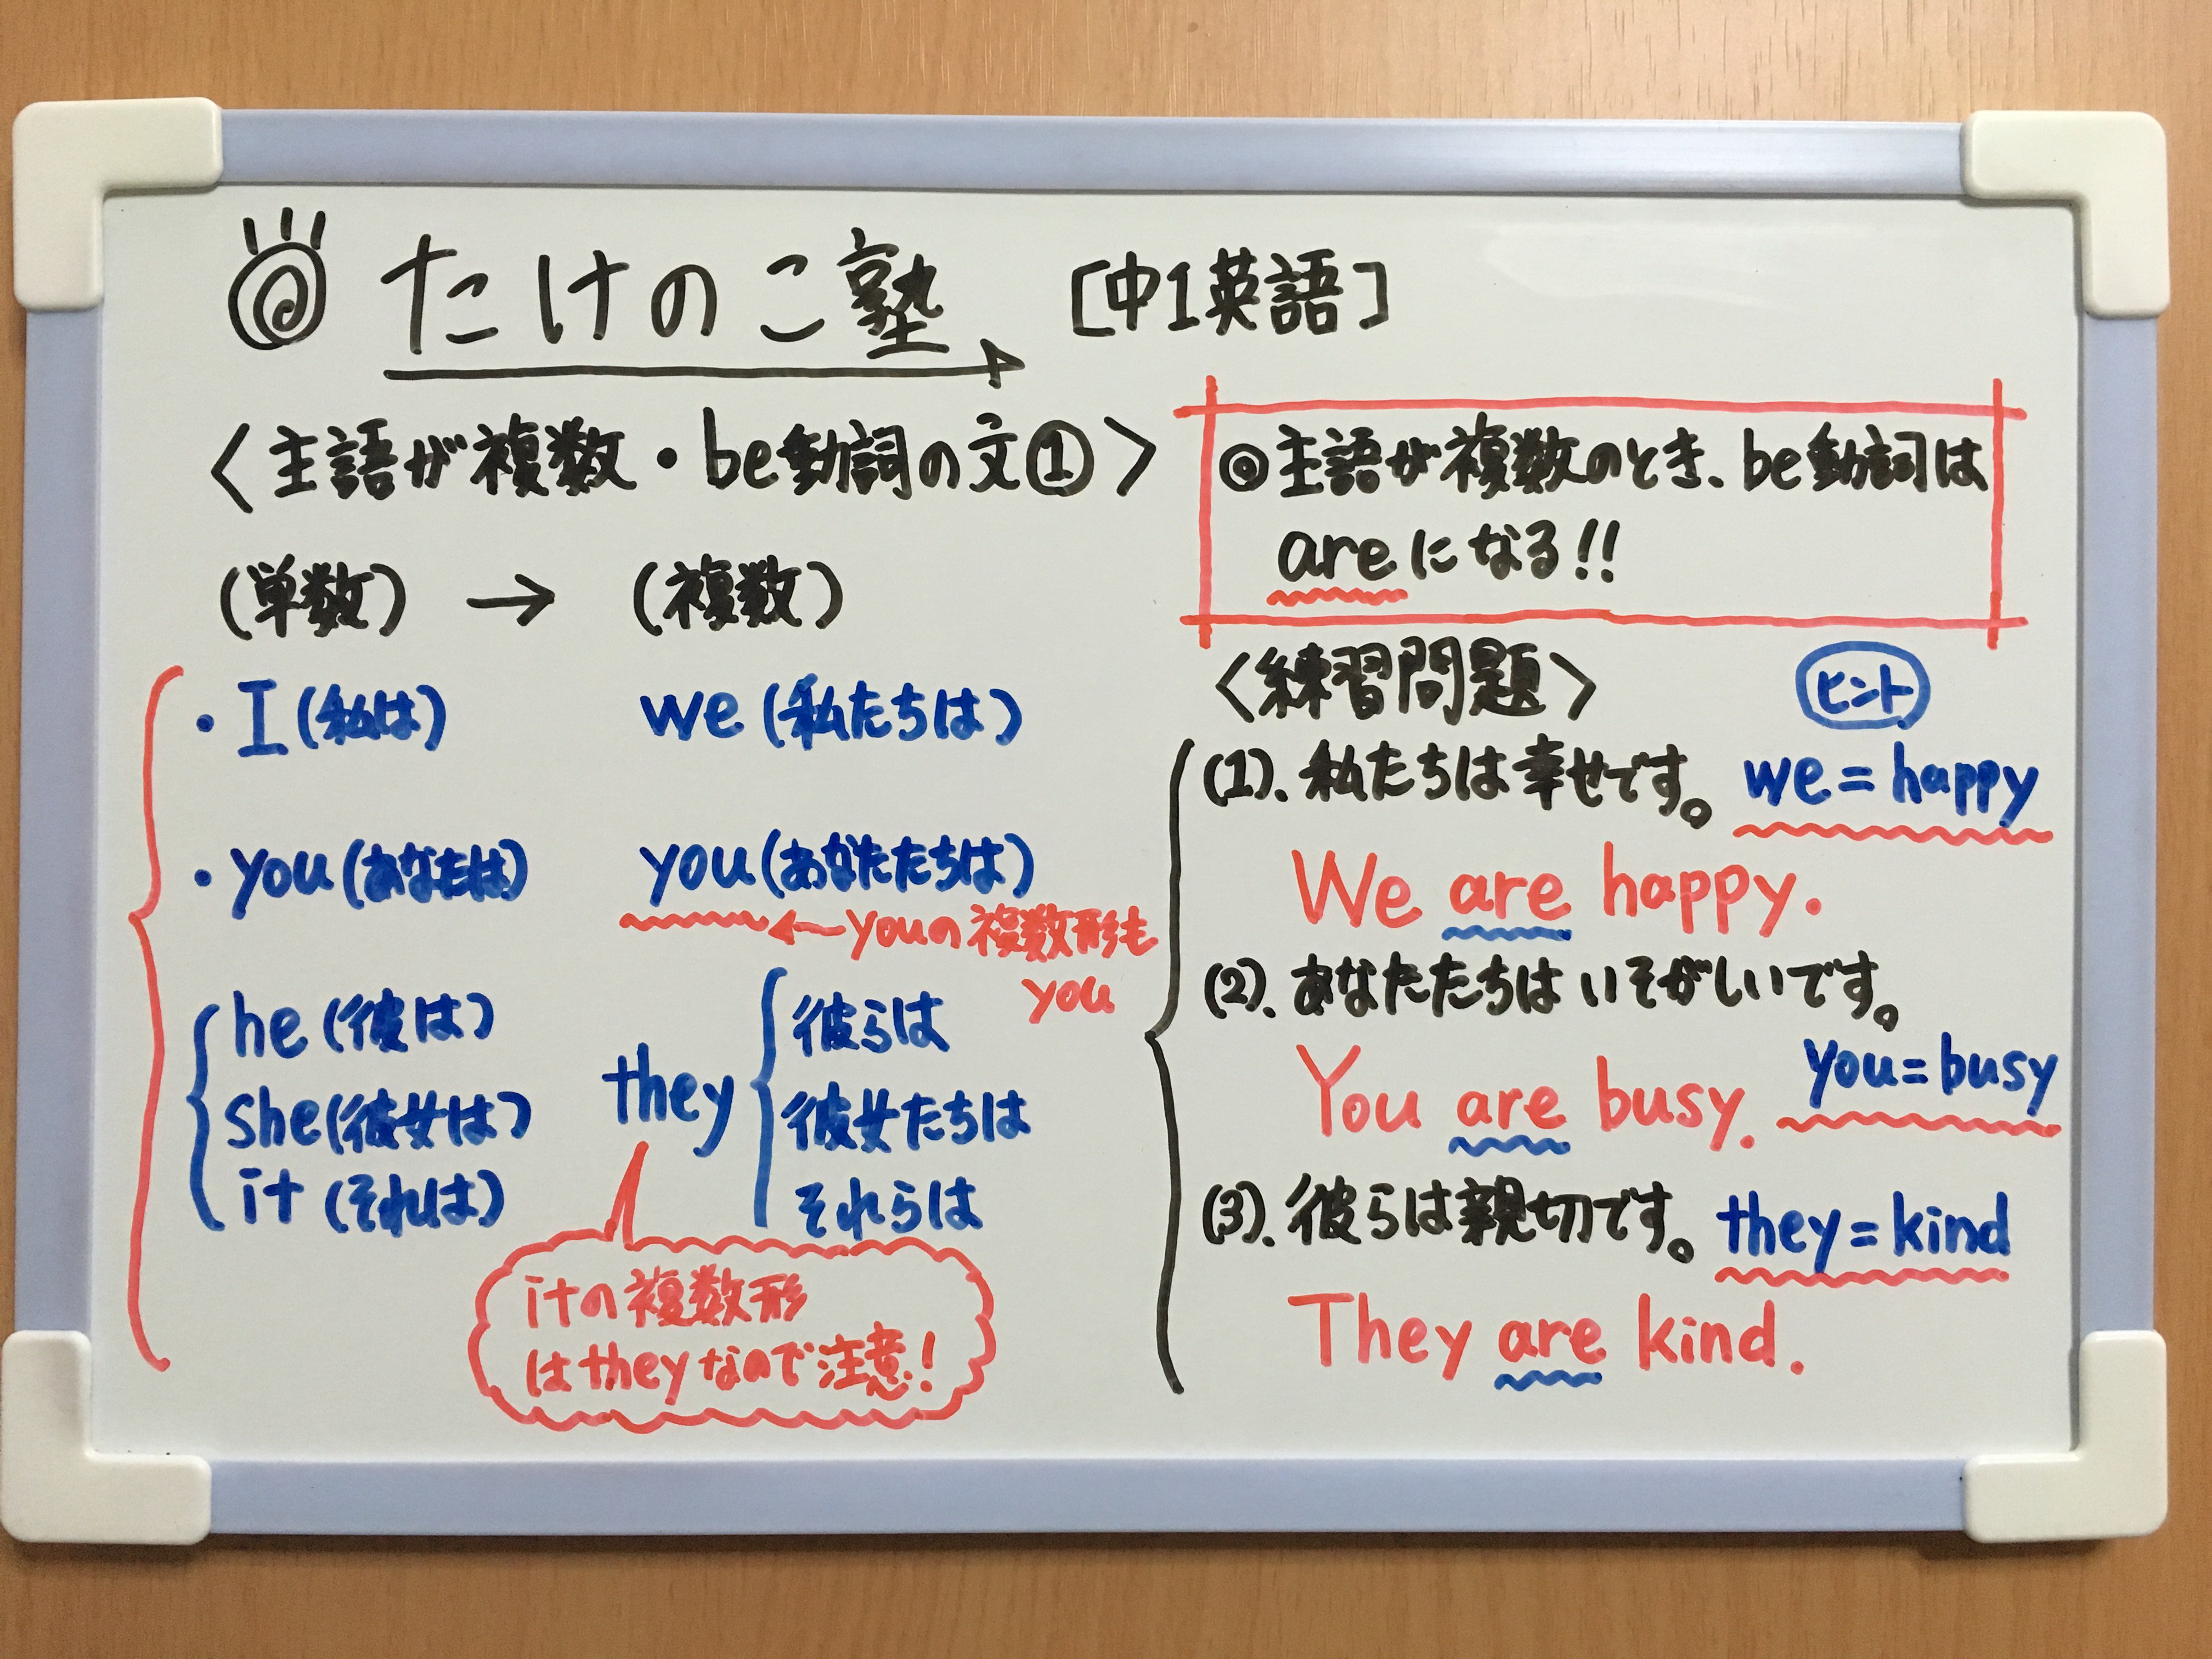 たけのこ塾 [中1英語]
〈主語が複数・be動詞の文①〉
(単数) → (複数)
・I (私は) we (私たちは)
・you (あなたは) you (あなたたちは)
←youの複数形も
you
he (彼は)
she (彼女は)
it (それは)
they
彼らは
彼女たちは
それらは
itの複数形
はtheyなので注意!
◎主語が複数のとき、be動詞は
areになる!!
〈練習問題〉 ヒント
(1). 私たちは幸せです。 we = happy
We are happy.
(2). あなたたちは いそがしいです。
you = busy
You are busy.
(3). 彼らは親切です。 they = kind
They are kind.